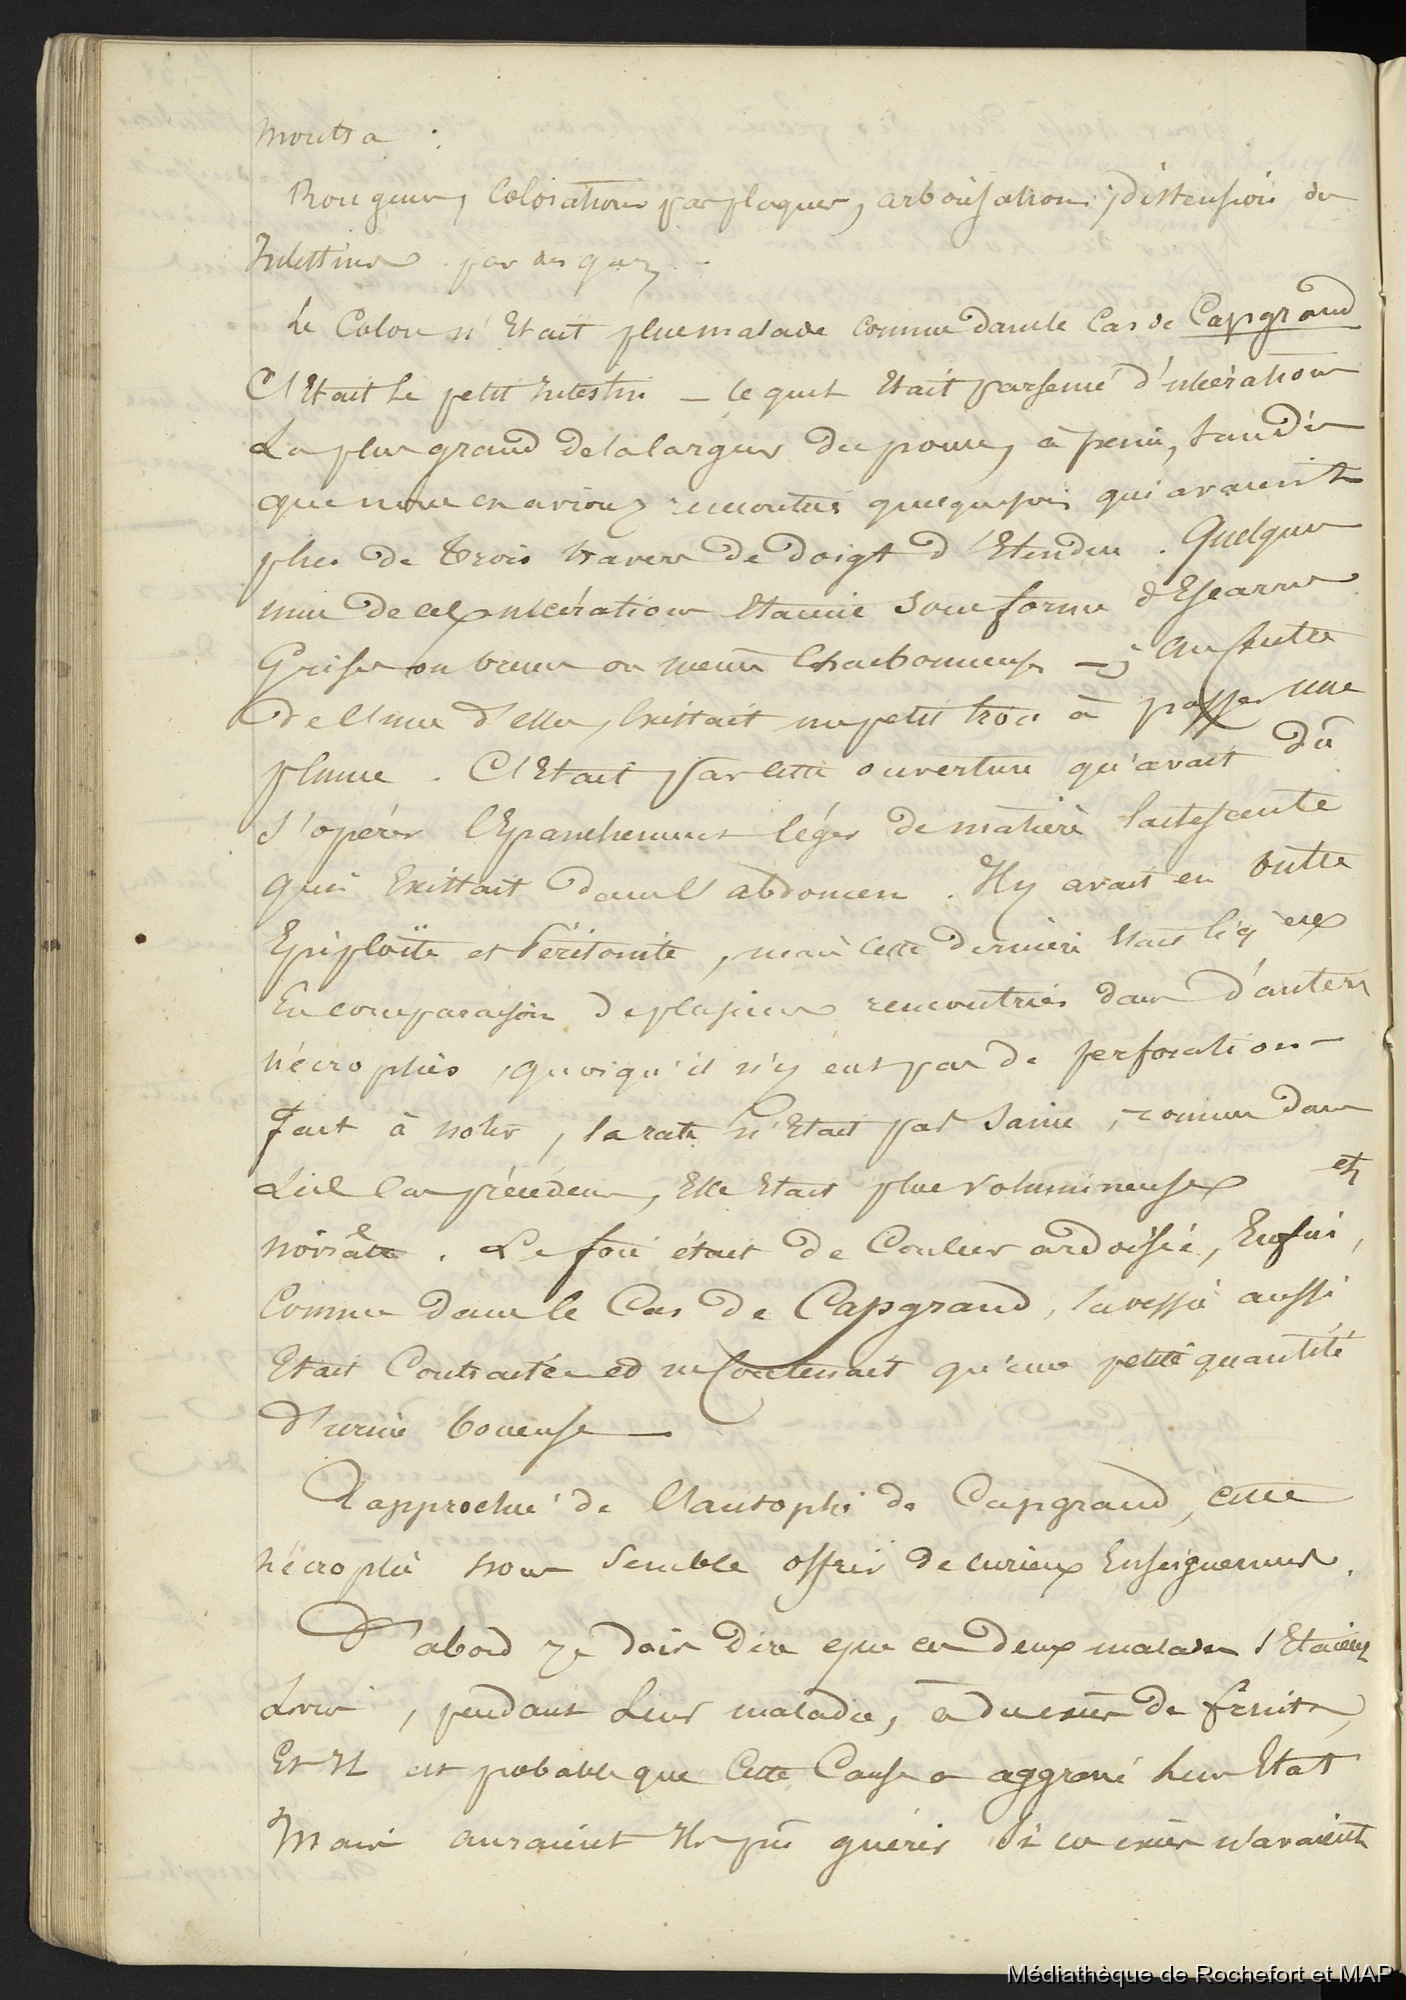 montra :
Rougeur, Coloration par plaques, arborisation, distension des
Intestins par des gaz.
Le Colon n'Etait plus malade comme dans le Cas de Capgrand
C'Etait le petit Intestin — lequel Etait parsemé d'ulcérations
La plus grand de la largeur du pouce, à peine, tandis
que nous en avions rencontrés quelquefois qui avaient
plus de trois travers de doigt d'Etendue. Quelques
unes de ces ulcérations Etaient sous forme d'Escarres
Grises ou brunes ou même Charbonneuses — ; au Centre
de l'une d'elles, Existait un petit trou à passer une
plume. C'Etait par cette ouverture qu'avait Dû
s'opérer l'Epanchement léger de matière lactescente
qui Existait dans l'abdomen. Il y avait en outre
Epiploïte et Péritonite, mais cette dernière Etait
En comparaison de plusieurs rencontrées dans d'autres
nécropsies, quoiqu'il n'y eut pas de perforation —
Fait à noter, la rate n'Etait pas saine, comme dans
les cas précédens, Elle Etait plus volumineuse et
noirâtre. Le foie était de Couleur ardoisée, Enfin,
Comme dans le Cas de Capgrand, la vessie aussi
Etait Contractée et ne Contenait qu'une petite quantité
d'urine boueuse —
Rapprochée de l'autopsie de Capgrand, cette
nécropsie nous semble offrir de curieux Enseignemens.
D'abord je dois dire que ces deux malades s'Etaient
Livrés, pendant leur maladie, à des excès de fruits,
Et Il est probable que Cette Cause a aggravé leur Etat
Mais auraient Ils pu guérir si ces excès n'avaient
Médiathèque de Rochefort et MAP